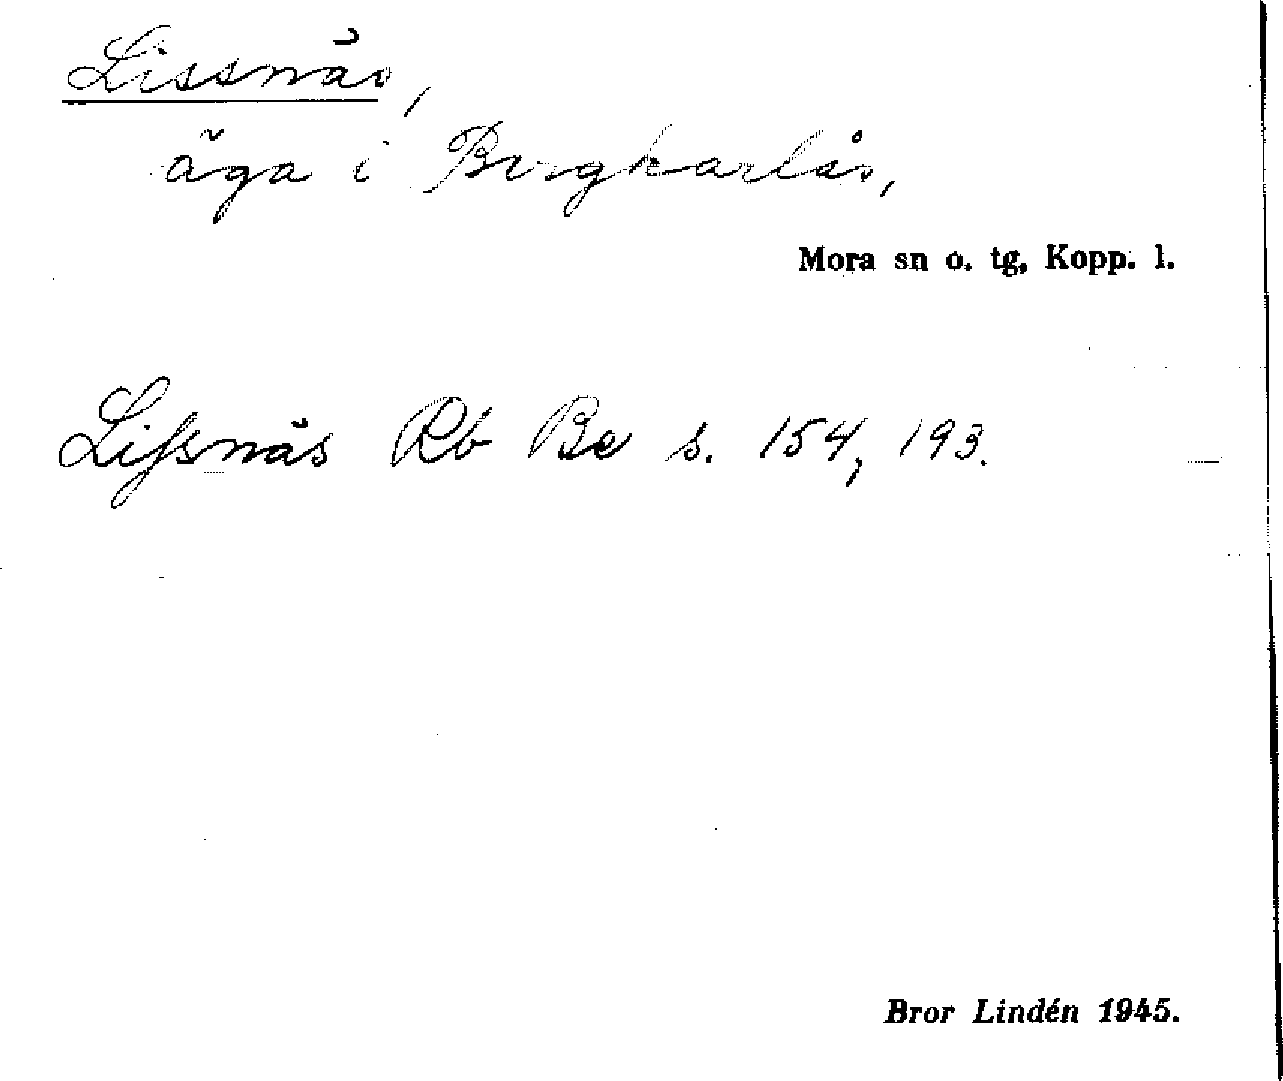 Lissnäs,
äga i Bergkarlås,
Mora sn o. tg, Kopp. l.
Lissnäs Rb Be s. 154, 193.
Bror Lindén 1945.